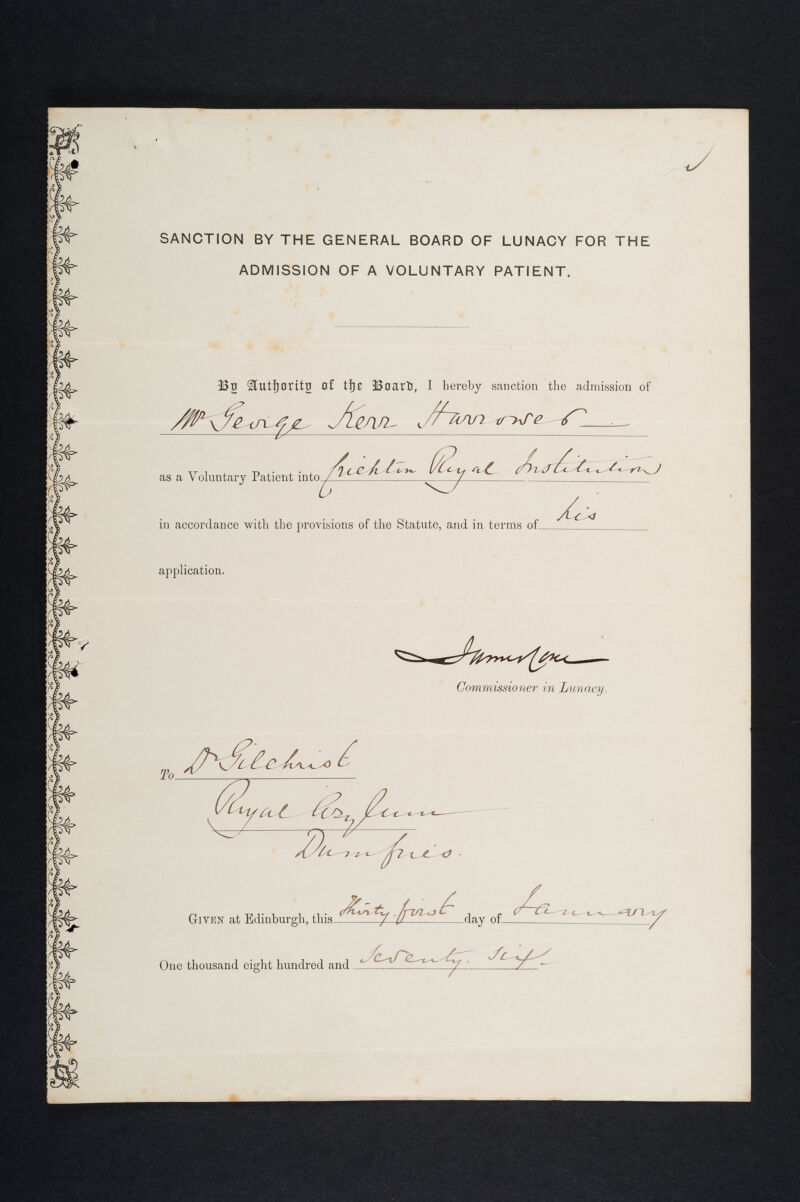 SANCTION BY THE GENERAL BOARD OF LUNACY FOR THE
ADMISSION OF A VOLUNTARY PATIENT.
By Authority of the Board, I hereby sanction the admission of
Mr George Kerr Harrower
as a Voluntary Patient into Crichton Royal Institution
in accordance with the provisions of the Statute, and in terms of his
application.
James Coxe
Commissioner in Lunacy.
To Dr Gilchrist
Royal Asylum
Dumfries.
GIVEN at Edinburgh, this Thirty-first day of January
One thousand eight hundred and Seventy. Six.